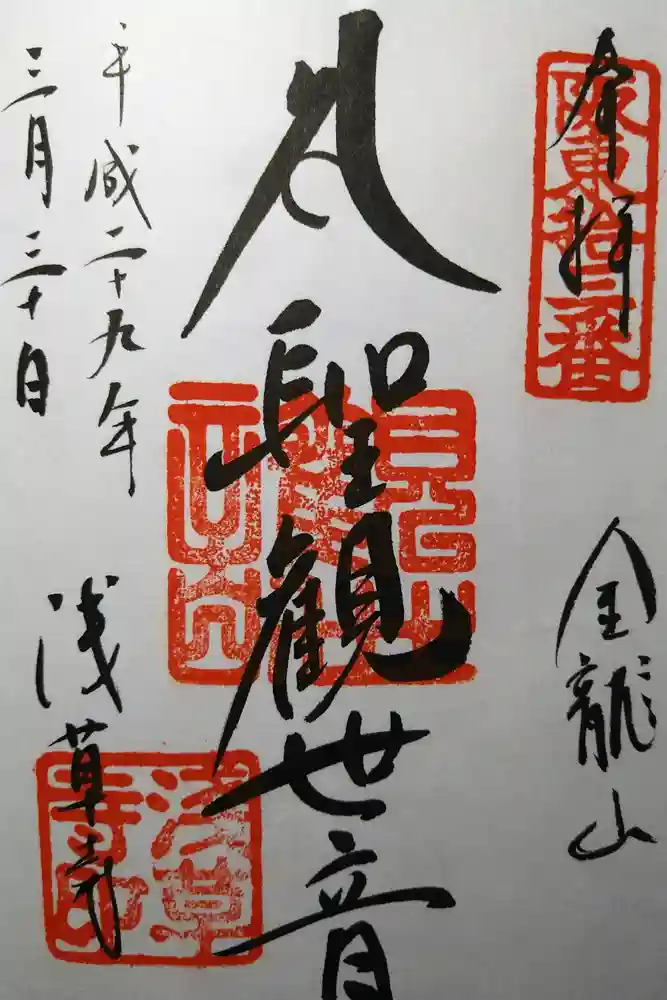 奉拝
阪東拾三番
金龍山
聖観世音
平成二十九年
三月三十日
浅草寺